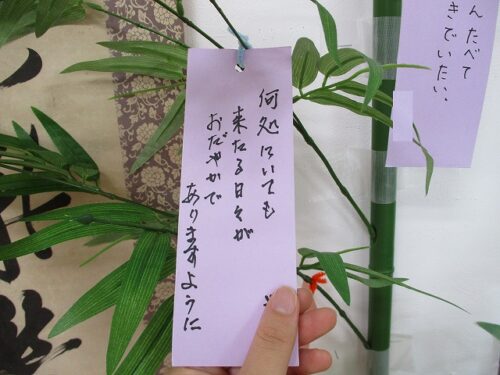 んたべて
きでいたい。
何処にいても
来たる日々が
おだやかで
ありますように